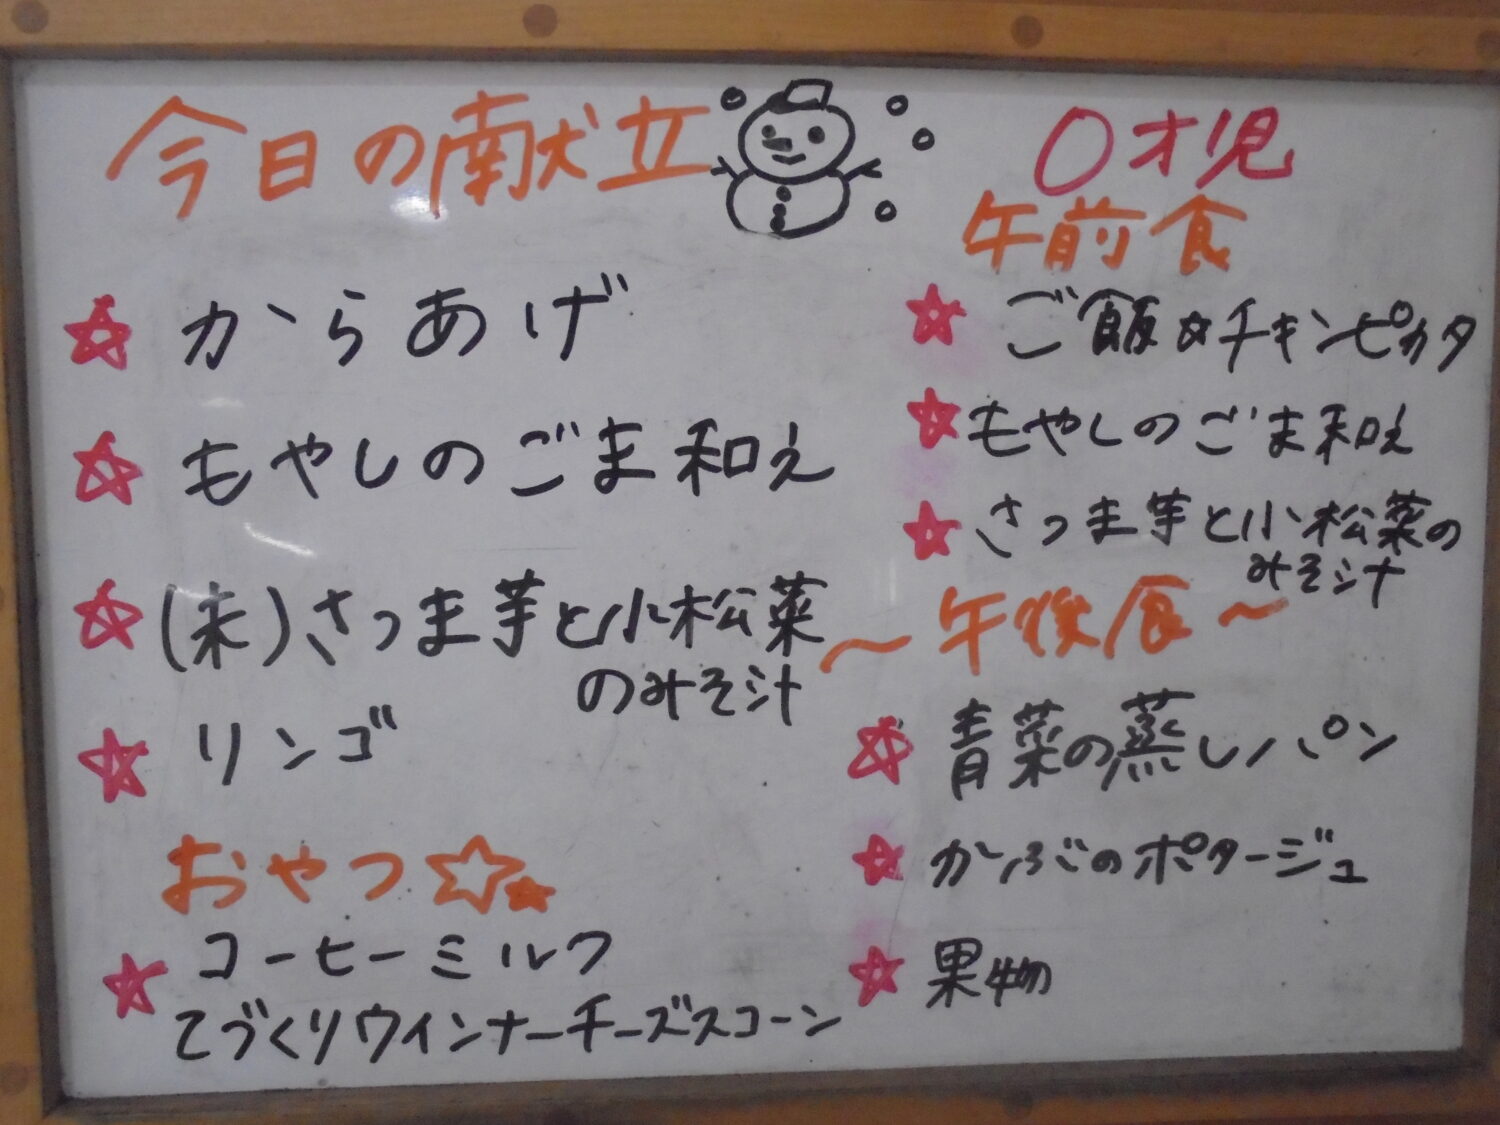 今日の献立
からあげ
もやしのごま和え
(未)さつま芋と小松菜
のみそ汁
リンゴ
おやつ☆★
コーヒーミルク
てづくりウインナーチーズスコーン
0才児
午前食
ご飯☆チキンピカタ
もやしのごま和え
さつま芋と小松菜の
みそ汁
～午後食～
青菜の蒸しパン
かぶのポタージュ
果物